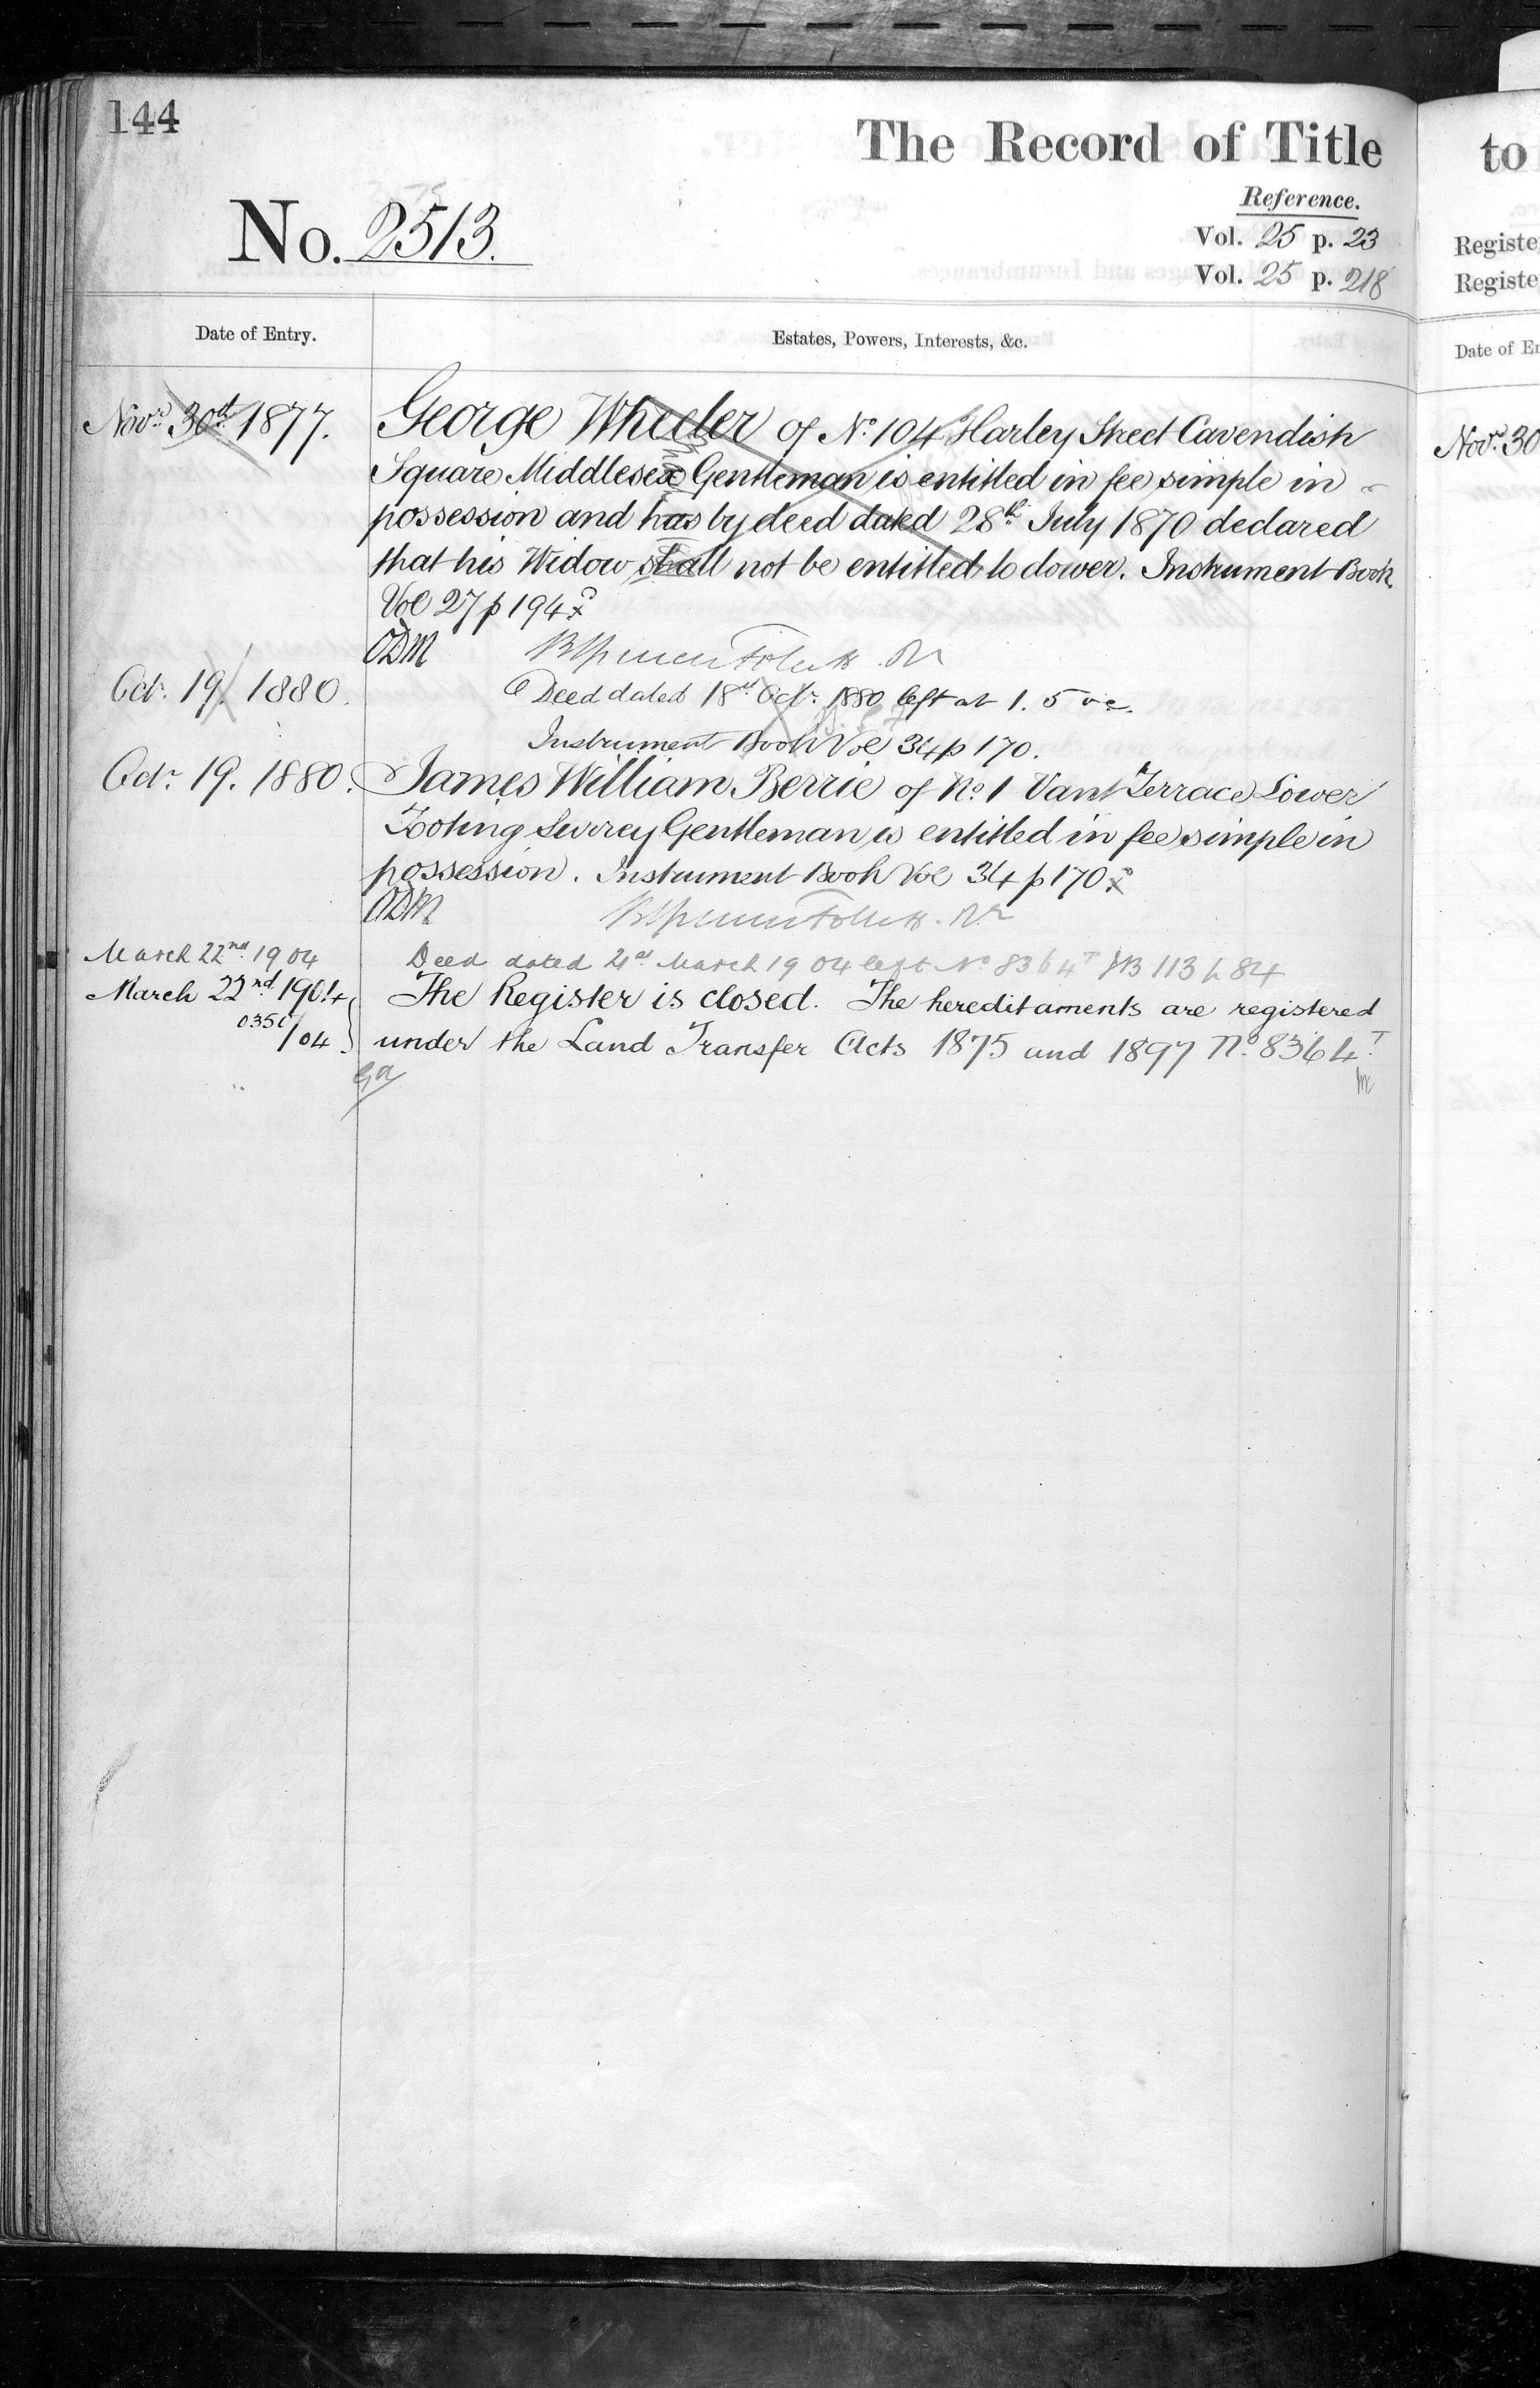 144
The Record of Title
to
Reference.
No. 2513.
Vol. 25 p. 23
Vol. 25 p. 218
Registe
Registe
Date of Entry.
Estates, Powers, Interests, &c.
Date of En
Novr. 30th 1877.
George Wheeler of No. 104 Harley Street Cavendish
Square Middlesex Gentleman is entitled in fee simple in
possession and has by deed dated 28th July 1870 declared
that his Widow shall not be entitled to dower. Instrument Book
Vol 27 p 194
ODM
Novr. 30
Oct. 19. 1880.
Deed dated 18th Octr. 1880 left at 1. 5
Instrument Book Vol 34 p 170.
Octr. 19. 1880.
James William Berrie of No. 1 Vant Terrace Lower
Tooting Surrey Gentleman is entitled in fee simple in
possession. Instrument Book Vol 34 p 170
ODM
March 22nd. 1904
Deed dated 21st March 1904 left No 8364T IB 113 p 84
March 22nd. 1904
The Register is closed. The hereditaments are registered
/04
under the Land Transfer Acts 1875 and 1897 No. 8364T